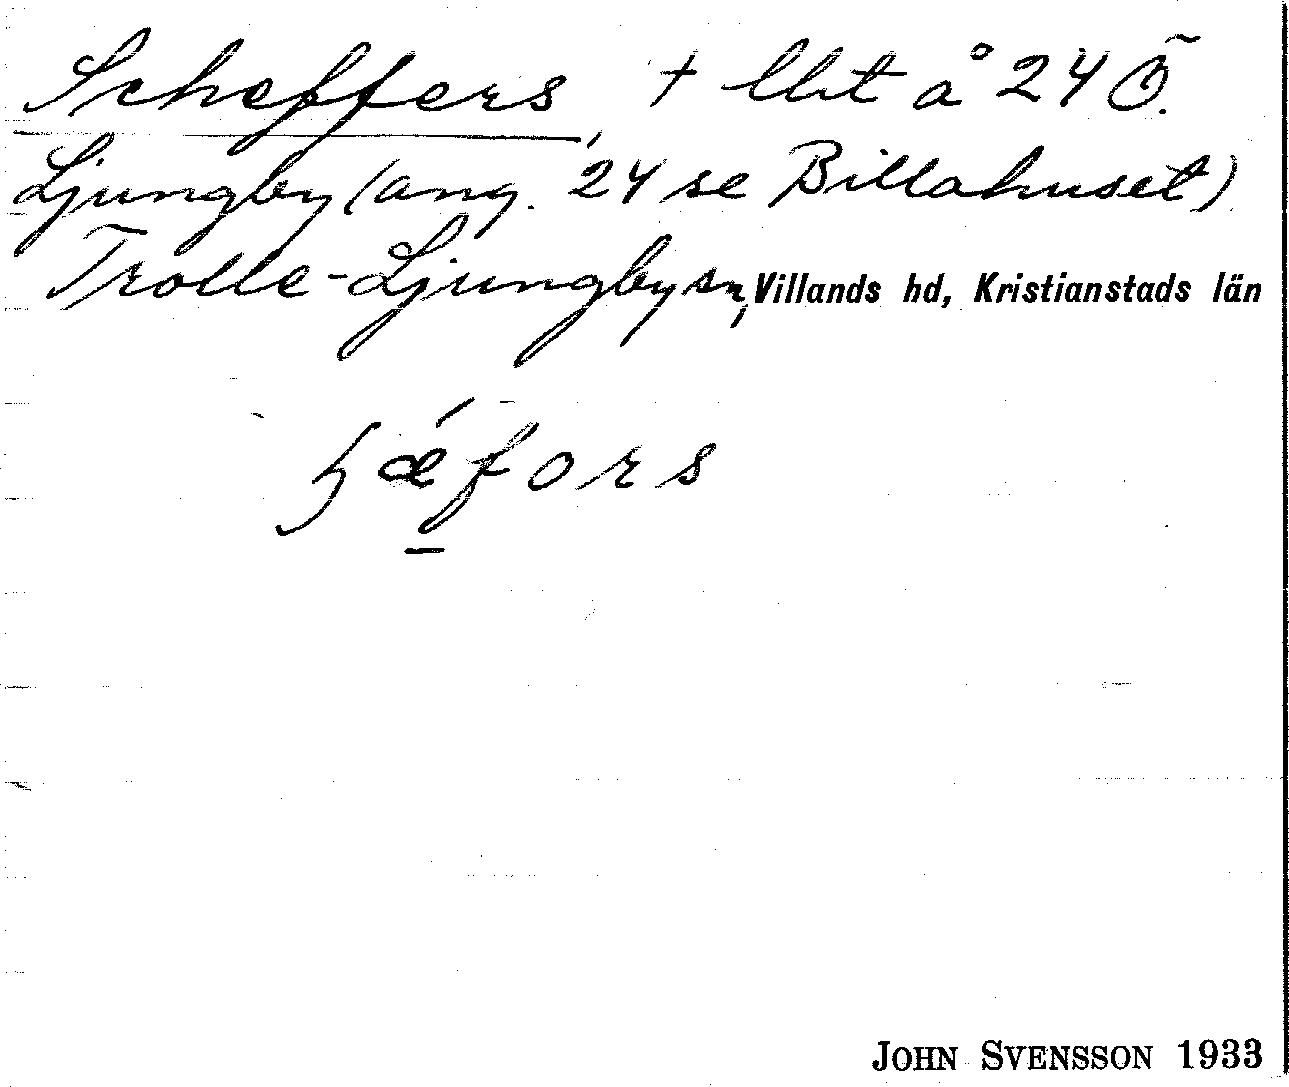 Scheffers, † lht å 24 Ö.
Ljungby (ang. 24 se Billahuset)
Trolle-Ljungby sn, Villands hd, Kristianstads län
ɧǽfors
JOHN SVENSSON 1933